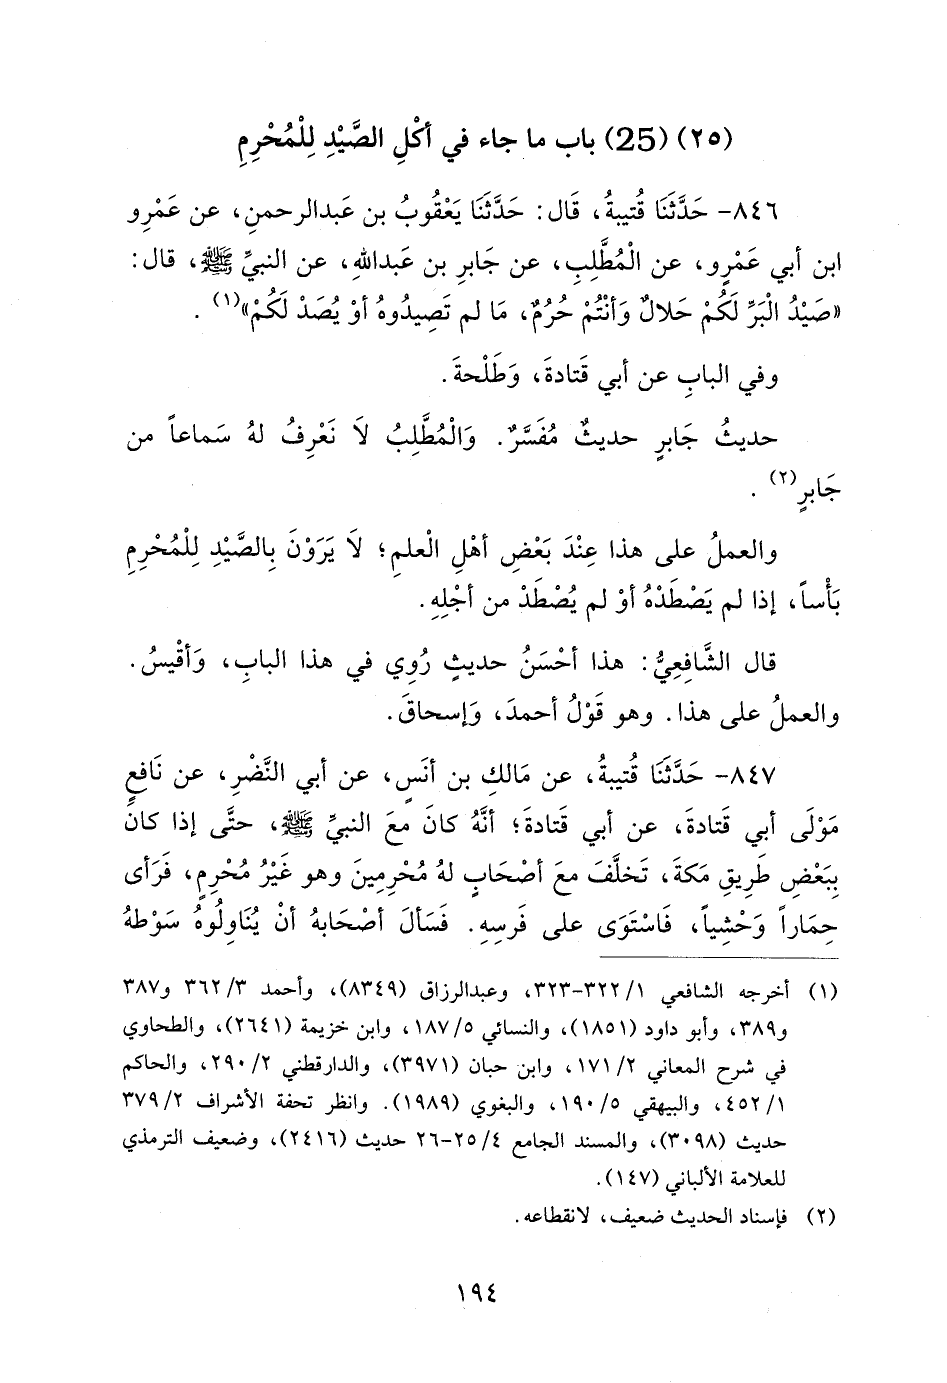 (٢٥) (25) باب ما جاء في أكْلِ الصَّيْدِ لِلْمُحْرِمِ
٨٤٦- حَدَّثَنَا قُتيبةُ، قَال: حَدَّثَنَا يَعْقُوبُ بن عَبدالرحمنِ، عن عَمْرِو
ابن أبي عَمْرٍو، عن الْمُطَّلِبِ، عن جَابرِ بن عَبداللهِ، عن النبيِّ ﷺ، قال:
«صَيْدُ الْبَرِّ لَكُمْ حَلالٌ وَأنْتُمْ حُرُمٌ، مَا لم تَصِيدُوهُ أوْ يُصَدْ لَكُمْ»(١) .
وفي البابِ عن أبي قَتادةَ، وَطَلْحةَ.
حديثُ جَابرٍ حديثٌ مُفَسَّرٌ. وَالْمُطَّلِبُ لاَ نَعْرِفُ لهُ سَماعاً من
جَابرٍ(٢) .
والعملُ على هذا عِنْدَ بَعْضِ أهْلِ الْعلمِ؛ لاَ يَرَوْنَ بِالصَّيْدِ لِلْمُحْرِمِ
بَأْساً، إذا لم يَصْطَدْهُ أوْ لم يُصْطَدْ من أجْلِهِ.
قال الشَّافِعِيُّ: هذا أحْسَنُ حديثٍ رُوِي في هذا البابِ، وَأقْيسُ.
والعملُ على هذا. وهو قَوْلُ أحمدَ، وَإسحاقَ.
٨٤٧- حَدَّثَنَا قُتيبةُ، عن مَالكِ بن أنَسٍ، عن أبي النَّضْرِ، عن نَافعٍ
مَوْلَى أبي قَتادةَ، عن أبي قَتادةَ؛ أنَّهُ كانَ معَ النبيِّ ﷺ، حتَّى إذا كانَ
بِبَعْضِ طَرِيقِ مَكةَ، تَخلَّفَ معَ أصْحَابٍ لهُ مُحْرِمِينَ وهو غَيْرُ مُحْرِمٍ، فَرَأى
حِمَاراً وَحْشِياً، فَاسْتَوَى على فَرسِهِ. فَسَألَ أصْحَابهُ أنْ يُنَاوِلُوهُ سَوْطهُ
(١) أخرجه الشافعي ١/ ٣٢٢-٣٢٣، وعبدالرزاق (٨٣٤٩)، وأحمد ٣/ ٣٦٢ و٣٨٧
و٣٨٩، وأبو داود (١٨٥١)، والنسائي ٥/ ١٨٧، وابن خزيمة (٢٦٤١)، والطحاوي
في شرح المعاني ٢/ ١٧١، وابن حبان (٣٩٧١)، والدارقطني ٢/ ٢٩٠، والحاكم
١/ ٤٥٢، والبيهقي ٥/ ١٩٠، والبغوي (١٩٨٩). وانظر تحفة الأشراف ٢/ ٣٧٩
حديث (٣٠٩٨)، والمسند الجامع ٤/ ٢٥-٢٦ حديث (٢٤١٦)، وضعيف الترمذي
للعلامة الألباني (١٤٧).
(٢) فإسناد الحديث ضعيف، لانقطاعه.
١٩٤